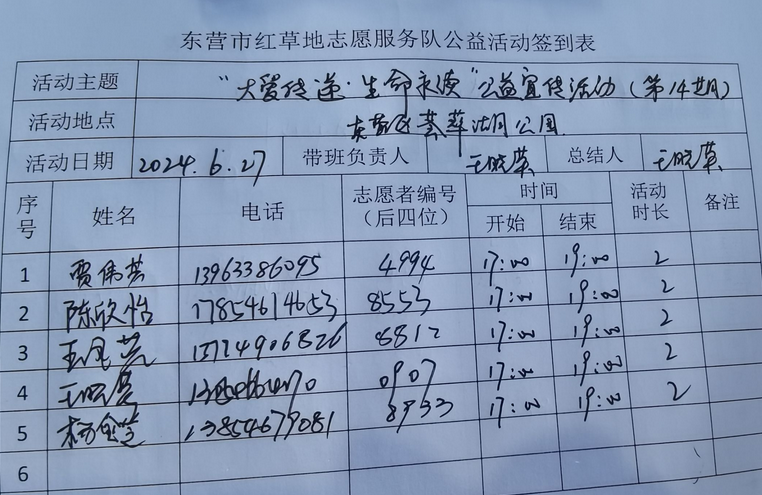 东营市红草地志愿服务队公益活动签到表
活动主题 “大爱传递·生命永续”公益宣传活动(第14期)
活动地点 东营区 湖公园
活动日期 2024.6.27 带班负责人 王晓英 总结人 王晓英
序号 姓名 电话 志愿者编号(后四位) 时间 开始 结束 活动时长 备注
1 贾伟芸 13963386095 4994 17:00 19:00 2
2 陈欣怡 17854614653 8553 17:00 19:00 2
3 王 6812 17:00 19:00 2
4 王晓英 0907 17:00 19:00 2
5 杨 13854679081 8933 17:00 19:00 2
6